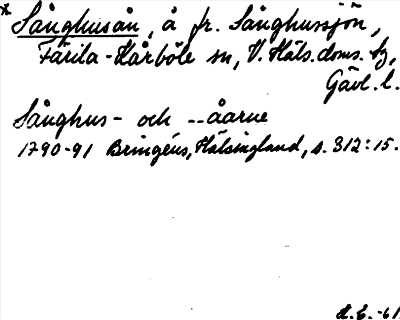 * Sånghusån, å fr. Sånghussjön,
Färila-Kårböle sn, V. Häls. doms. tg,
Gävl. l.
Sånghus- och --åarne
1790-91 Bringéus, Hälsingland, s. 312:15.
-61